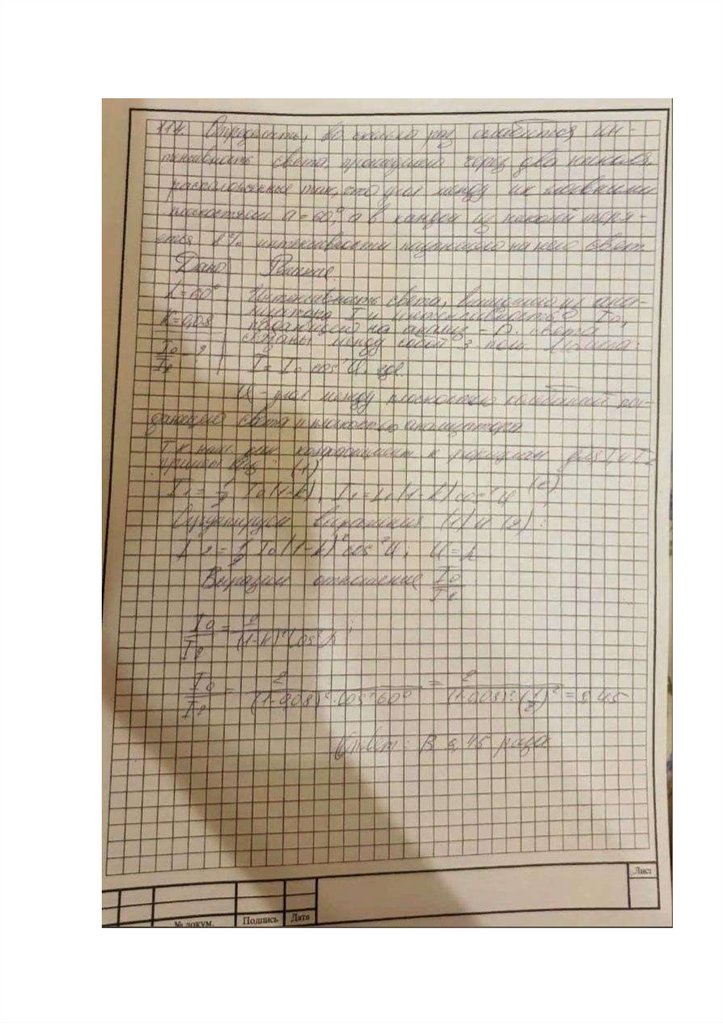 114. Определить, во сколько раз ослабится ин-
тенсивность света, прошедшего через два николя
расположенные так, что угол между их главными
плоскостями α = 60°, а в каждом из николей теря-
ется 8% интенсивности падающего на него свет
Дано Решение
α = 60° Интенсивность света, вышедшего из
I и интенсивность I₀,
K = 0,08 падающего на анализ-р. света
связаны между собой з
I₀/I₂ - ? I = I₀ cos²φ, где
φ - угол между плоскостью колебаний па-
дающего света и плоскостью анализатора
к формулам для I₁ и I₂
(1)
I₁ = 1/2 I₀(1-k), I₂ = I₁(1-k) cos²φ (2)
выражения (1) и (2):
I₂ = 1/2 I₀(1-k)² cos²φ; φ = α
Выразим отношение I₀/I₂
I₀/I₂ = 2/(1-k)² cos²α;
I₀/I₂ = 2/(1-0,08)²·cos²60° = 2/(1-0,08)²·(1/2)² = 9,45
Ответ: В 9,45 раза
Лист
№ докум. Подпись Дата